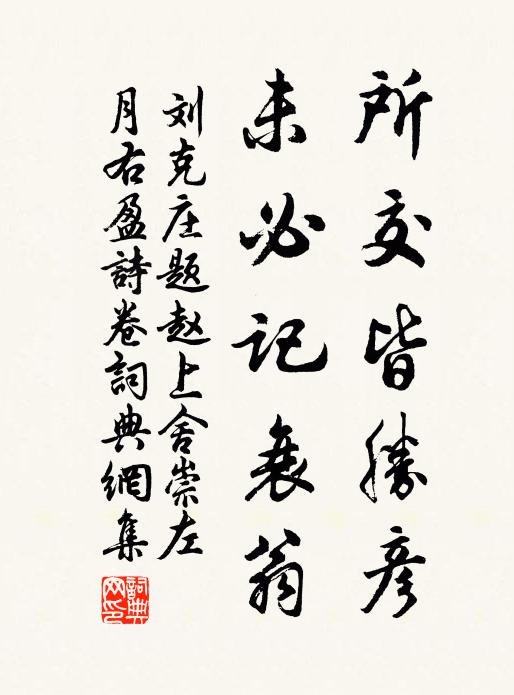 所交皆勝彦
未必記衰翁
刘克庄题赵上舍崇左
月右盈詩卷詞典網集
詞典网印